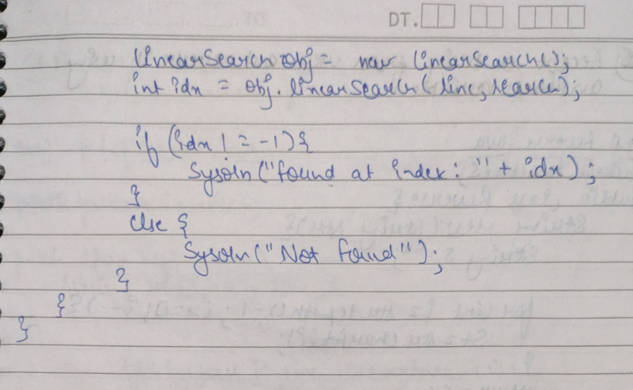 DT.
LinearSearch obj = new LinearSearch();
int idx = obj.linearSearch(line, search);
if (idx != -1) {
Sysoln("found at index: " + idx);
}
else {
Sysoln("Not found");
}
}
}